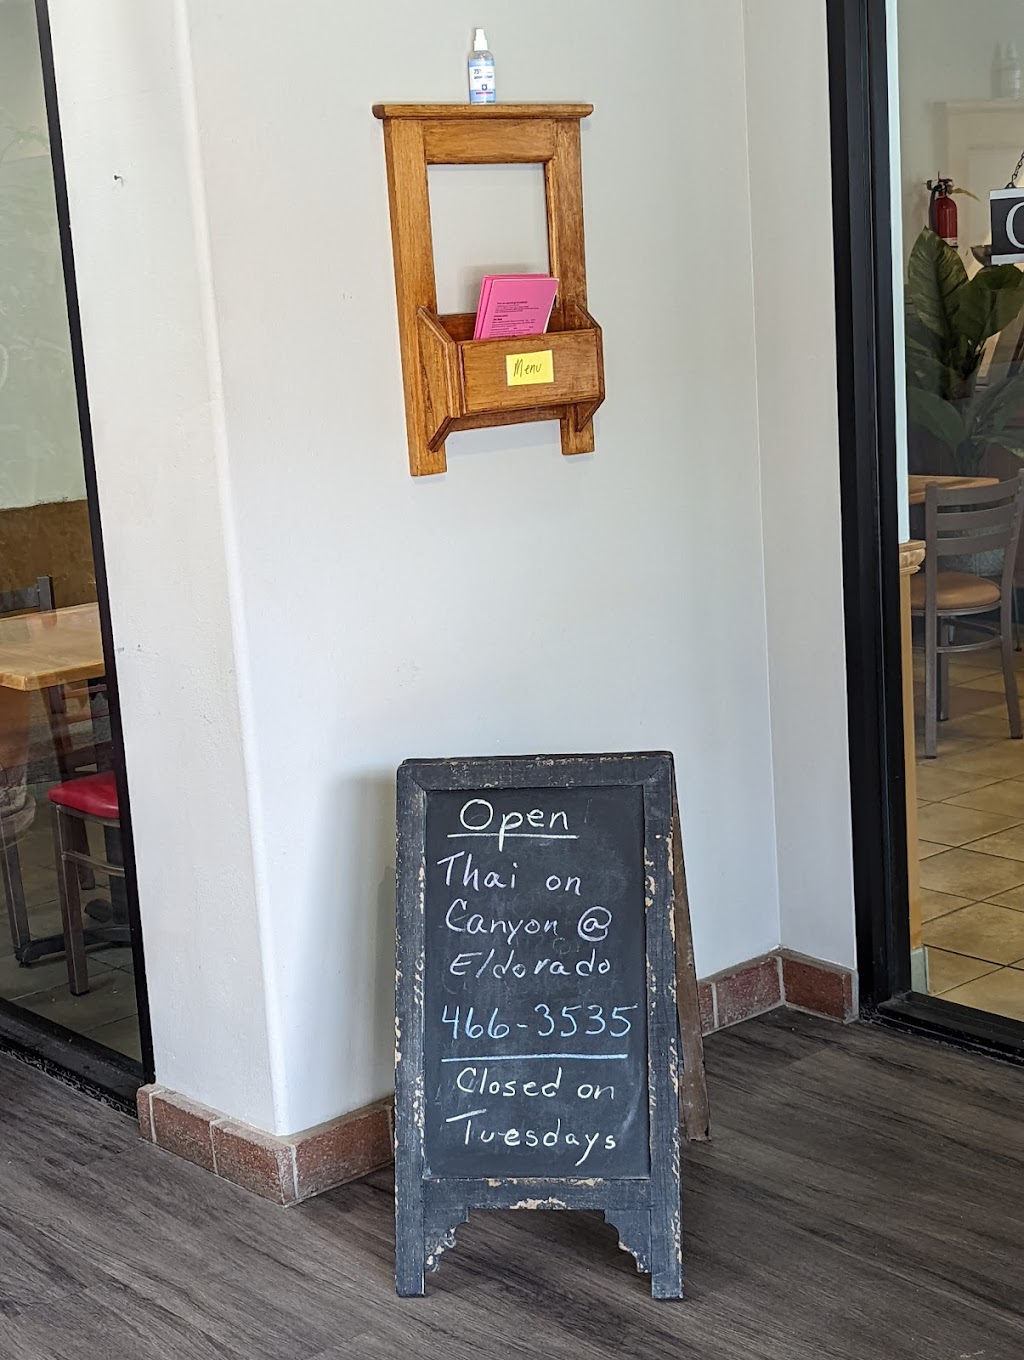 75%
Menu
Open
Thai on
Canyon @
Eldorado
466-3535
Closed on
Tuesdays